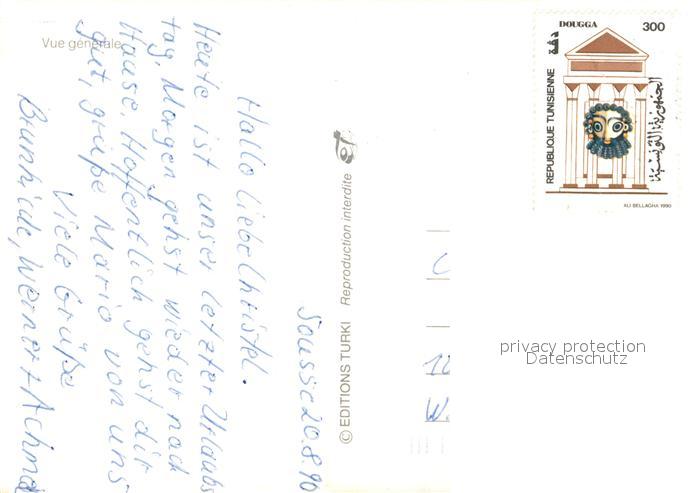 Vue générale
Sousse 20.8.90
Hallo liebe Christel.
Heute ist unser letzter Urlaubs
tag, Morgen gehst wieder nach
Hause. Hoffentlich gehst dir
gut, grüße Mario von uns
Viele Grüße
Brunhilde, Werner + Achmed
© EDITIONS TURKI Reproduction interdite
DOUGGA
دقة
300
REPUBLIQUE TUNISIENNE
الجمهورية التونسية
ALI BELLAGHA 1990
privacy protection
Datenschutz
W.